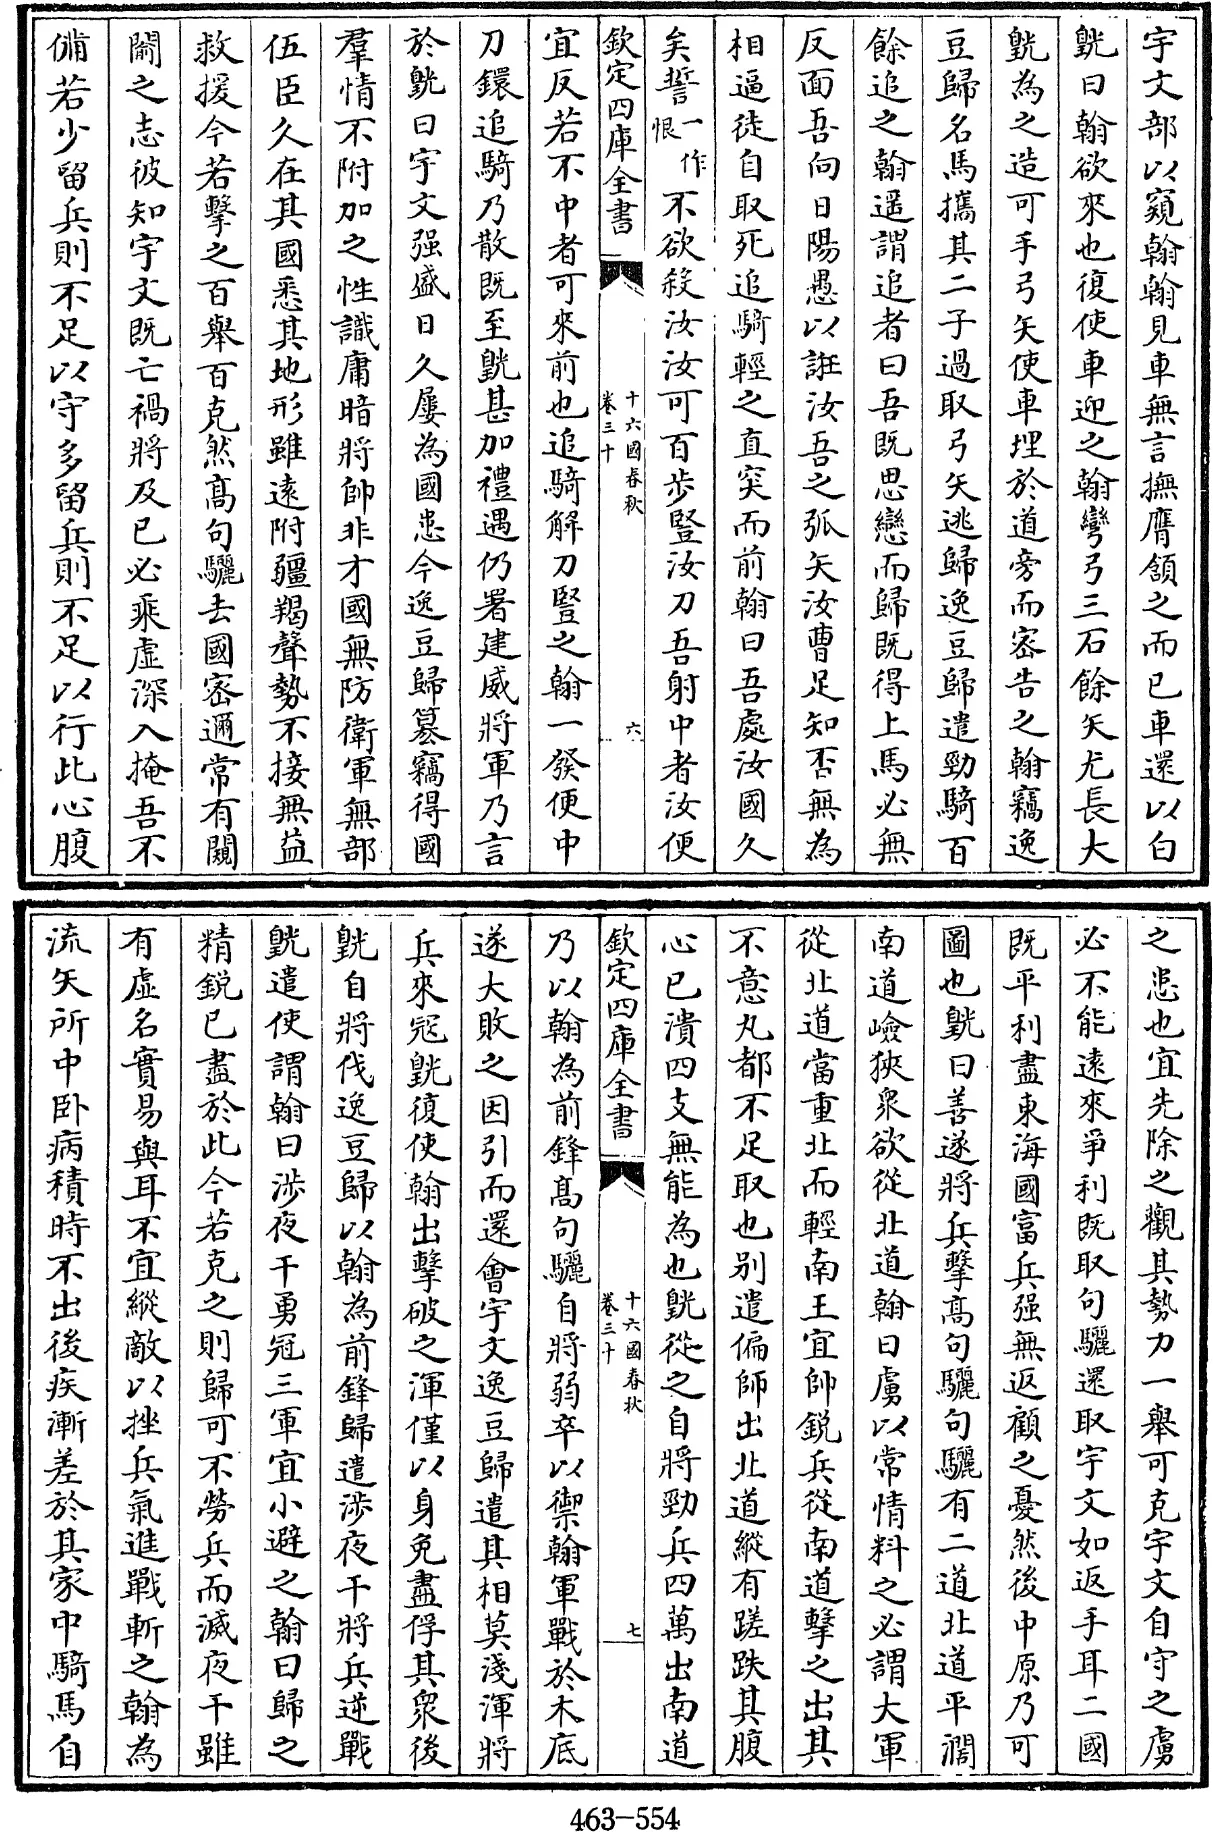 宇文部以窺翰翰見車無言撫膺頷之而已車還以白
皝曰翰欲來也復使車迎之翰彎弓三石餘矢尤長大
皝為之造可手弓矢使車埋於道旁而宻告之翰竊逸
豆歸名馬攜其二子過取弓矢逃歸逸豆歸遣勁騎百
餘追之翰遥謂追者曰吾既思戀而歸既得上馬必無
反面吾向日陽愚以誑汝吾之弧矢汝曹足知否無為
相逼徒自取死追騎輕之直突而前翰曰吾處汝國久
矣誓一作恨不欲殺汝汝可百步豎汝刀吾射中者汝便
欽定四庫全書 十六國春秋 卷三十 六
宜反若不中者可來前也追騎解刀豎之翰一發便中
刀鐶追騎乃散既至皝甚加禮遇仍署建威將軍乃言
於皝曰宇文强盛日久屢為國患今逸豆歸簒竊得國
羣情不附加之性識庸暗將帥非才國無防衛軍無部
伍臣久在其國悉其地形雖遠附疆羯聲勢不接無益
救援今若擊之百舉百克然髙句驪去國宻邇常有闚
闗之志彼知宇文既亡禍將及已必乘虛深入掩吾不
備若少留兵則不足以守多留兵則不足以行此心腹
之患也宜先除之觀其勢力一舉可克宇文自守之虜
必不能逺來爭利既取句驪還取宇文如返手耳二國
既平利盡東海國富兵强無返顧之憂然後中原乃可
圖也皝曰善遂將兵擊髙句驪句驪有二道北道平濶
南道嶮狹衆欲從北道翰曰虜以常情料之必謂大軍
從北道當重北而輕南王宜帥銳兵從南道擊之出其
不意丸都不足取也别遣偏師出北道縱有蹉跌其腹
心已潰四支無能為也皝從之自將勁兵四萬出南道
欽定四庫全書 十六國春秋 卷三十 七
乃以翰為前鋒髙句驪自將弱卒以禦翰軍戰於木底
遂大敗之因引而還㑹宇文逸豆歸遣其相莫淺渾將
兵來冦皝復使翰出擊破之渾僅以身免盡俘其衆後
皝自將伐逸豆歸以翰為前鋒歸遣涉夜干將兵逆戰
皝遣使謂翰曰涉夜干勇冠三軍宜小避之翰曰歸之
精銳已盡於此今若克之則歸可不勞兵而滅夜干雖
有虛名實易與耳不宜縱敵以挫兵氣進戰斬之翰為
流矢所中卧病積時不出後疾漸差於其家中騎馬自
463-554